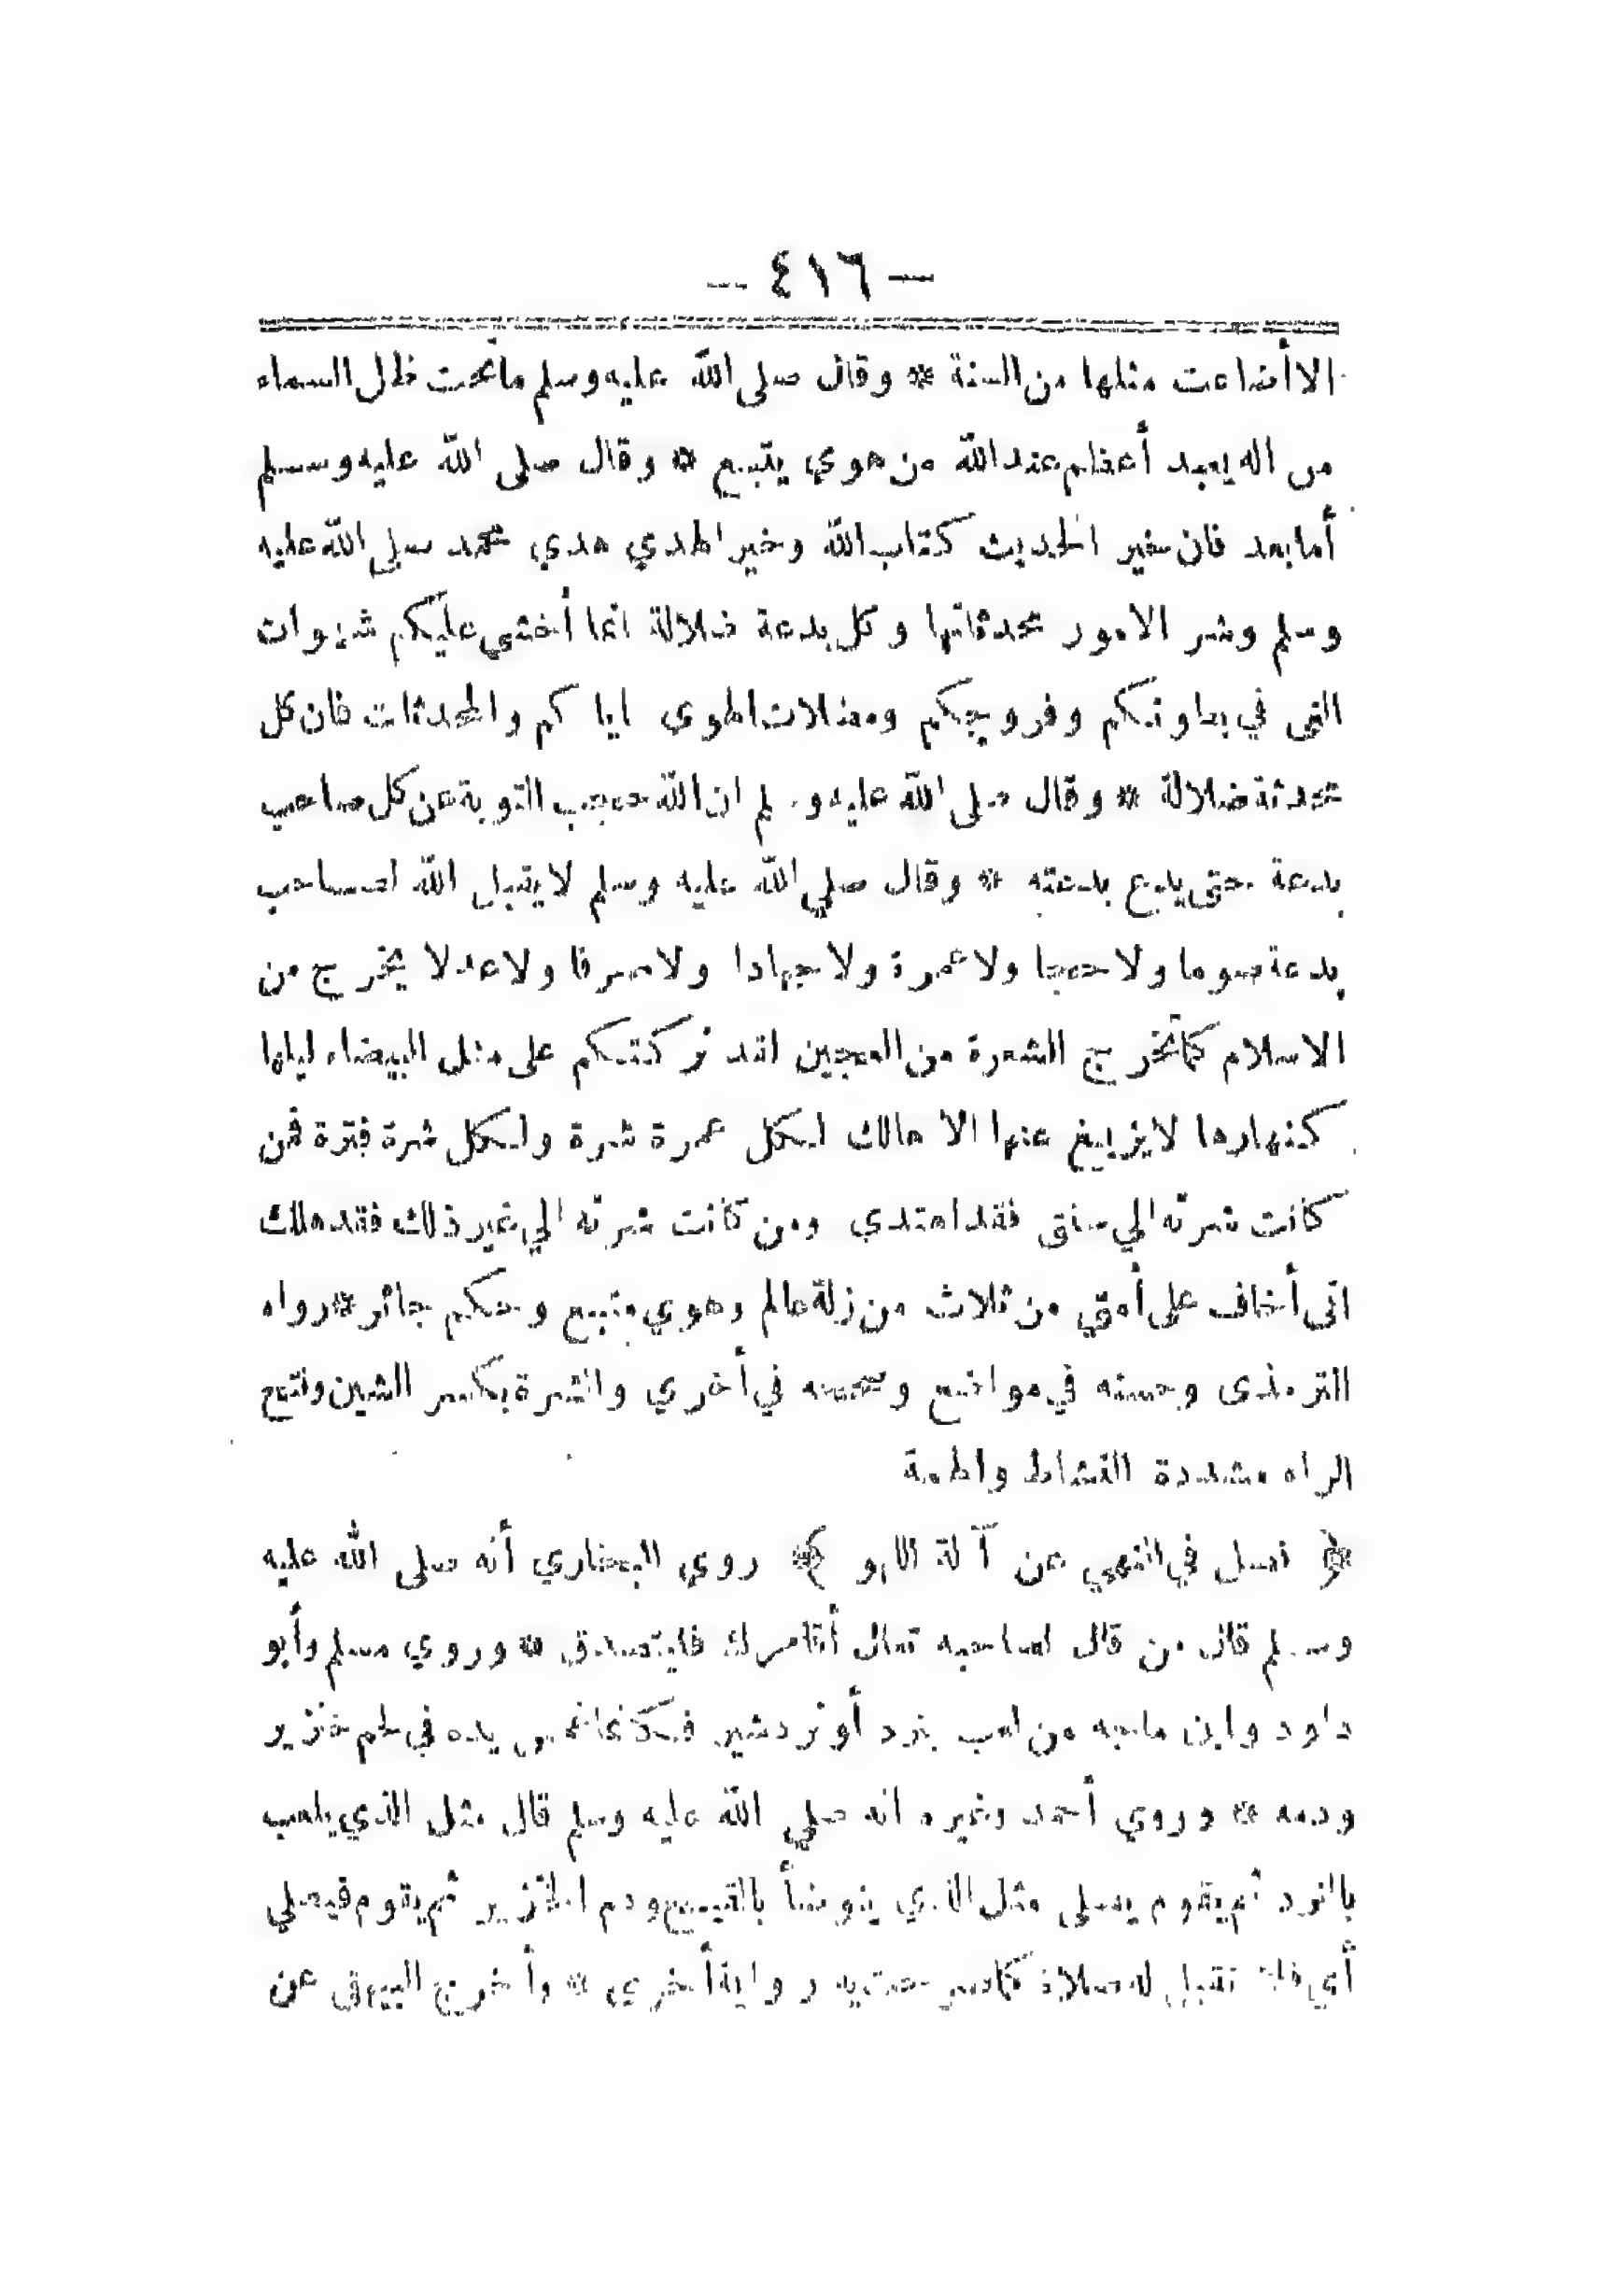 — ٤١٦ —
الا أضاعت مثلها من السنة * وقال صلى الله عليه وسلم ما تحت ظل السماء
من اله يعبد أعظم عند الله من هوي يتبع * وقال صلى الله عليه وسلم
أما بعد فان خير الحديث كتاب الله وخير الهدي هدي محمد صلى الله عليه
وسلم وشر الامور محدثاتها وكل بدعة ضلالة انما أخشى عليكم شهوات
الغى في بطونكم وفروجكم ومضلات الهوى اياكم والمحدثات فان كل
محدثة ضلالة * وقال صلى الله عليه وسلم ان الله حجب التوبة عن كل صاحب
بدعة حتى يدع بدعته * وقال صلي الله عليه وسلم لا يقبل الله لصاحب
بدعة صوما ولا حجا ولا عمرة ولا جهادا ولا صرفا ولا عدلا يخرج من
الاسلام كما تخرج الشعرة من العجين لقد تركتكم على مثل البيضاء ليلها
كنهارها لا يزيغ عنها الا هالك لكل عمرة شرة ولكل شرة فترة فمن
كانت شرته الي سنتى فقد اهتدي ومن كانت شرته الي غير ذلك فقد هلك
انى أخاف على أمتي من ثلاث من زلة عالم وهوي متبع وحكم جائر * رواه
الترمذى وحسنه في مواضع وصححه في أخري والشرة بكسر الشين وفتح
الراء مشددة النشاط والهمة
﴿ فصل في النهي عن آلة اللهو ﴾ روي البخاري أنه صلى الله عليه
وسلم قال من قال لصاحبه تعال أقامرك فليتصدق * وروي مسلم وأبو
داود وابن ماجه من لعب بنرد أو نردشير فكأنما غمس يده في لحم خنزير
ودمه * وروي أحمد وغيره انه صلي الله عليه وسلم قال مثل الذي يلعب
بالنرد ثم يقوم يصلى مثل الذي يتوضأ بالقيح ودم الخنزير ثم يقوم فيصلي
أي فلا تقبل له صلاة كما صرحت به رواية أخرى * وأخرج البيهقى عن